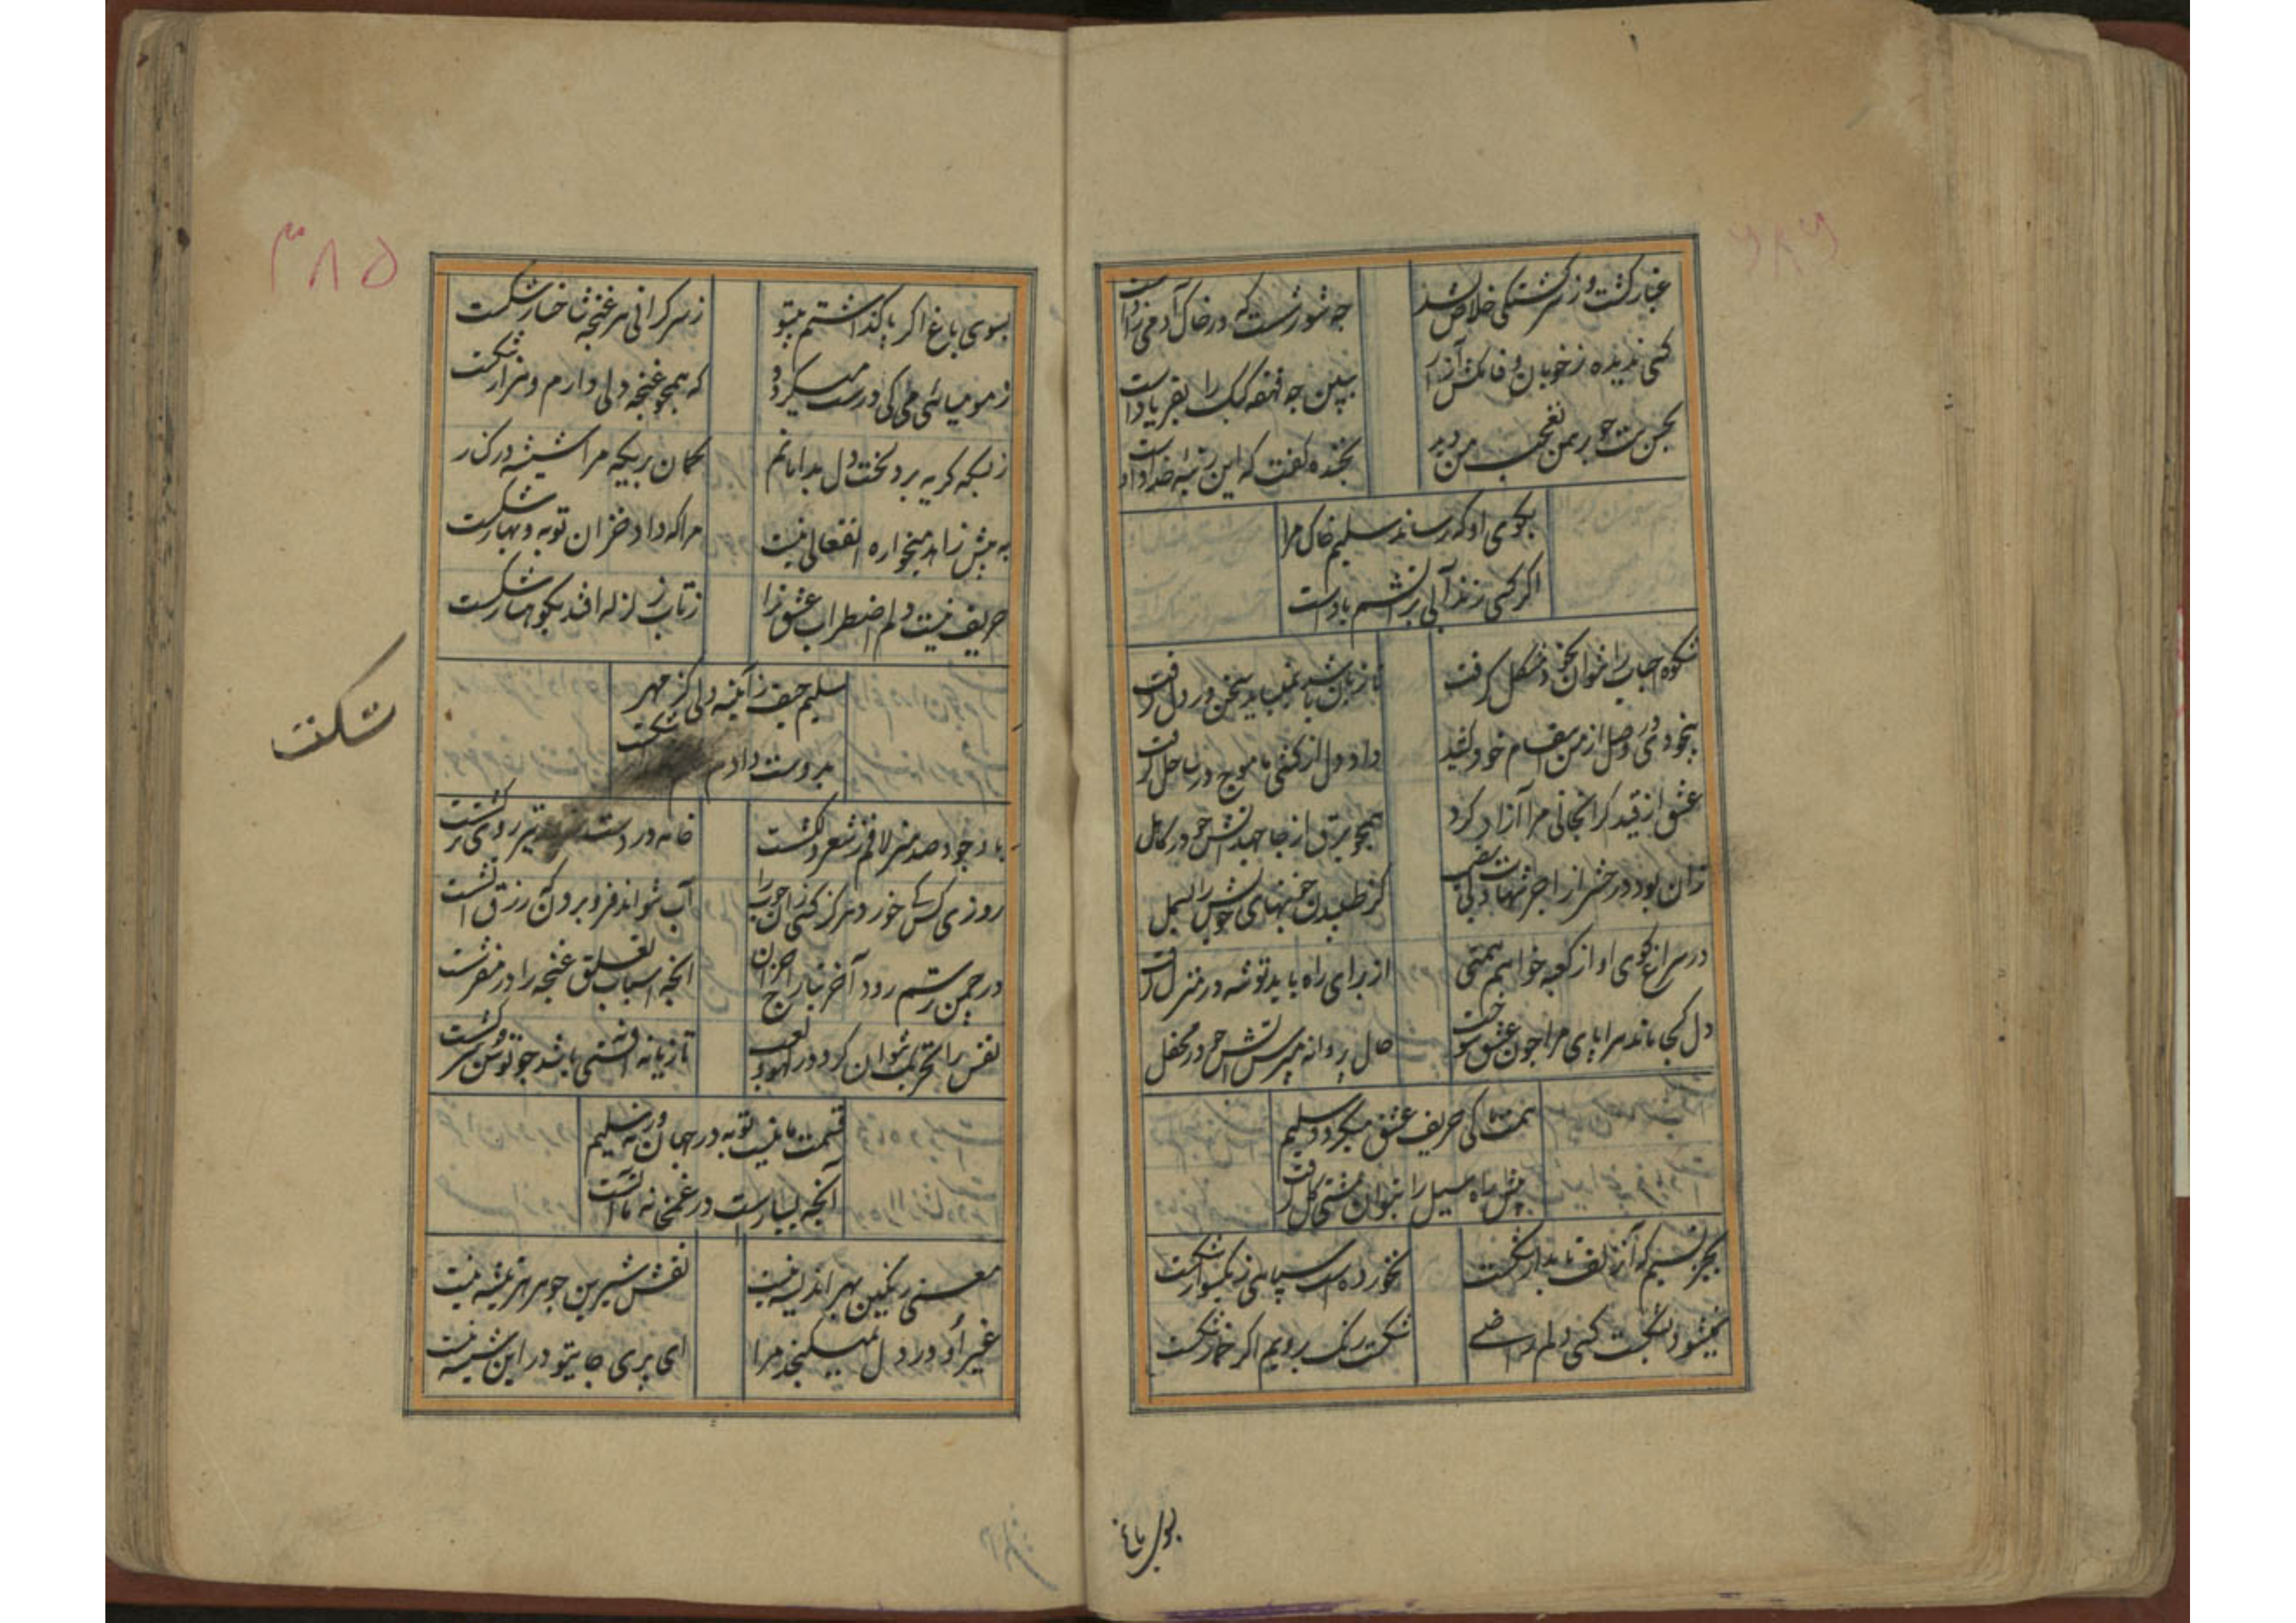 غبار گشت و ز سرگشتگی خلاص نشد
چه شورشست که در خاک آدمی زاد است
کسی ندیده ز خوبان وفا مکش آزار
ببین چه قهقهه کبک را بفریاد است
بحسن ست چو برهمن تعجب من دید
بخنده گفت که این رتبه خداداد است
بکوی او که رساند سلیم خاک مرا
اگر کسی زند آبی بر آتشم باد است
شکوه احباب را نتوان بخود مشکل گرفت
تا زبان باشد نمیباید سخن در دل گرفت
بیخودی در وصل از من انتقام خود کشید
داد دل از کشتی ما موج در ساحل گرفت
عشق از قید گرانجانی مرا آزاد کرد
همچو برق از جا جهد آتش چو در کاهل
زان بود در حشر از اجر شهادت بی نصیب
کز طپیدن خونبهای خویش را بسمل
در سراغ کوی او از کعبه خواهم همتی
از برای راه باید توشه در منزل گرفت
دل کجا ماند سراپای مرا چون عشق سوخت
حال پروانه مپرس آتش چو در محفل
همت ما کی حریف عشق میگردد سلیم
پیش راه سیل را نتوان بمشتی گل گرفت
بجز نسیم که آن زلف تابدار شکست
نخورده است سپاهی ز یکسوار شکست
نمیشود بشکست کسی دلم راضی
شکست رنگ برویم اگر خمار شکست
بسوی باغ
۳۸۵
بسوی باغ اگر پا گذاشتم بیتو
ز سرگرانی هر غنچه شاخسار شکست
ز مومیائی می کی درست میگردد
که همچو غنچه دلی دارم و هزار شکست
ز بسکه گریه برد لخت دل بدامانم
گمان بری که مرا شیشه در کنار
به پیش زاهد میخواره انفعالی نیست
مرا که داد خزان توبه و بهار شکست
حریف نیست دلم اضطراب عشق ترا
ز تاب زلزله افتد بکوهسار شکست
سلیم حیف ز آئینه دلی کز مهر
بدوست دادم شکست
شکست
با وجود صد هنر لافم ز شعر دلکشست
خامه در دست تیر روی ترکشست
روزی کس کس خورد هرگز کسی زان چوب را
آب نتواند فرو بردن که رزق آتشست
در چمن رستم رود آخر بتاراج خزان
آنچه اسباب تعلق غنچه را در مفرشست
نفس را تحریک نتوان کرد در لهو و لعب
تازیانه افتنی باشد چو توسن سرکشست
قسمت ما نیست توبه در جهان ورنه سلیم
آنچه بسیارست در غمخانه ما آتشست
معنی رنگین بهر اندیشه نیست
نقش شیرین جوهر هر تیشه نیست
غیر او در دل نمیگنجد مرا
ای پری جا بیتو در این شیشه نیست